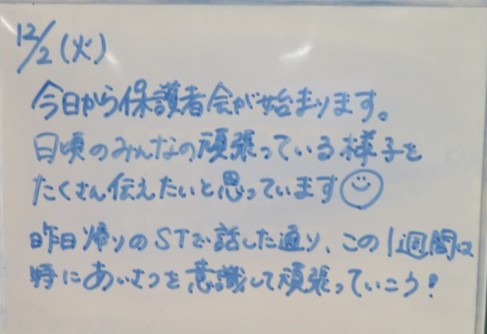 12/2(火)
今日から保護者会が始まります。
日頃のみんなの頑張っている様子を
たくさん伝えたいと思っています
昨日帰りのSTで話した通り、この1週間は
特にあいさつを意識して頑張っていこう!